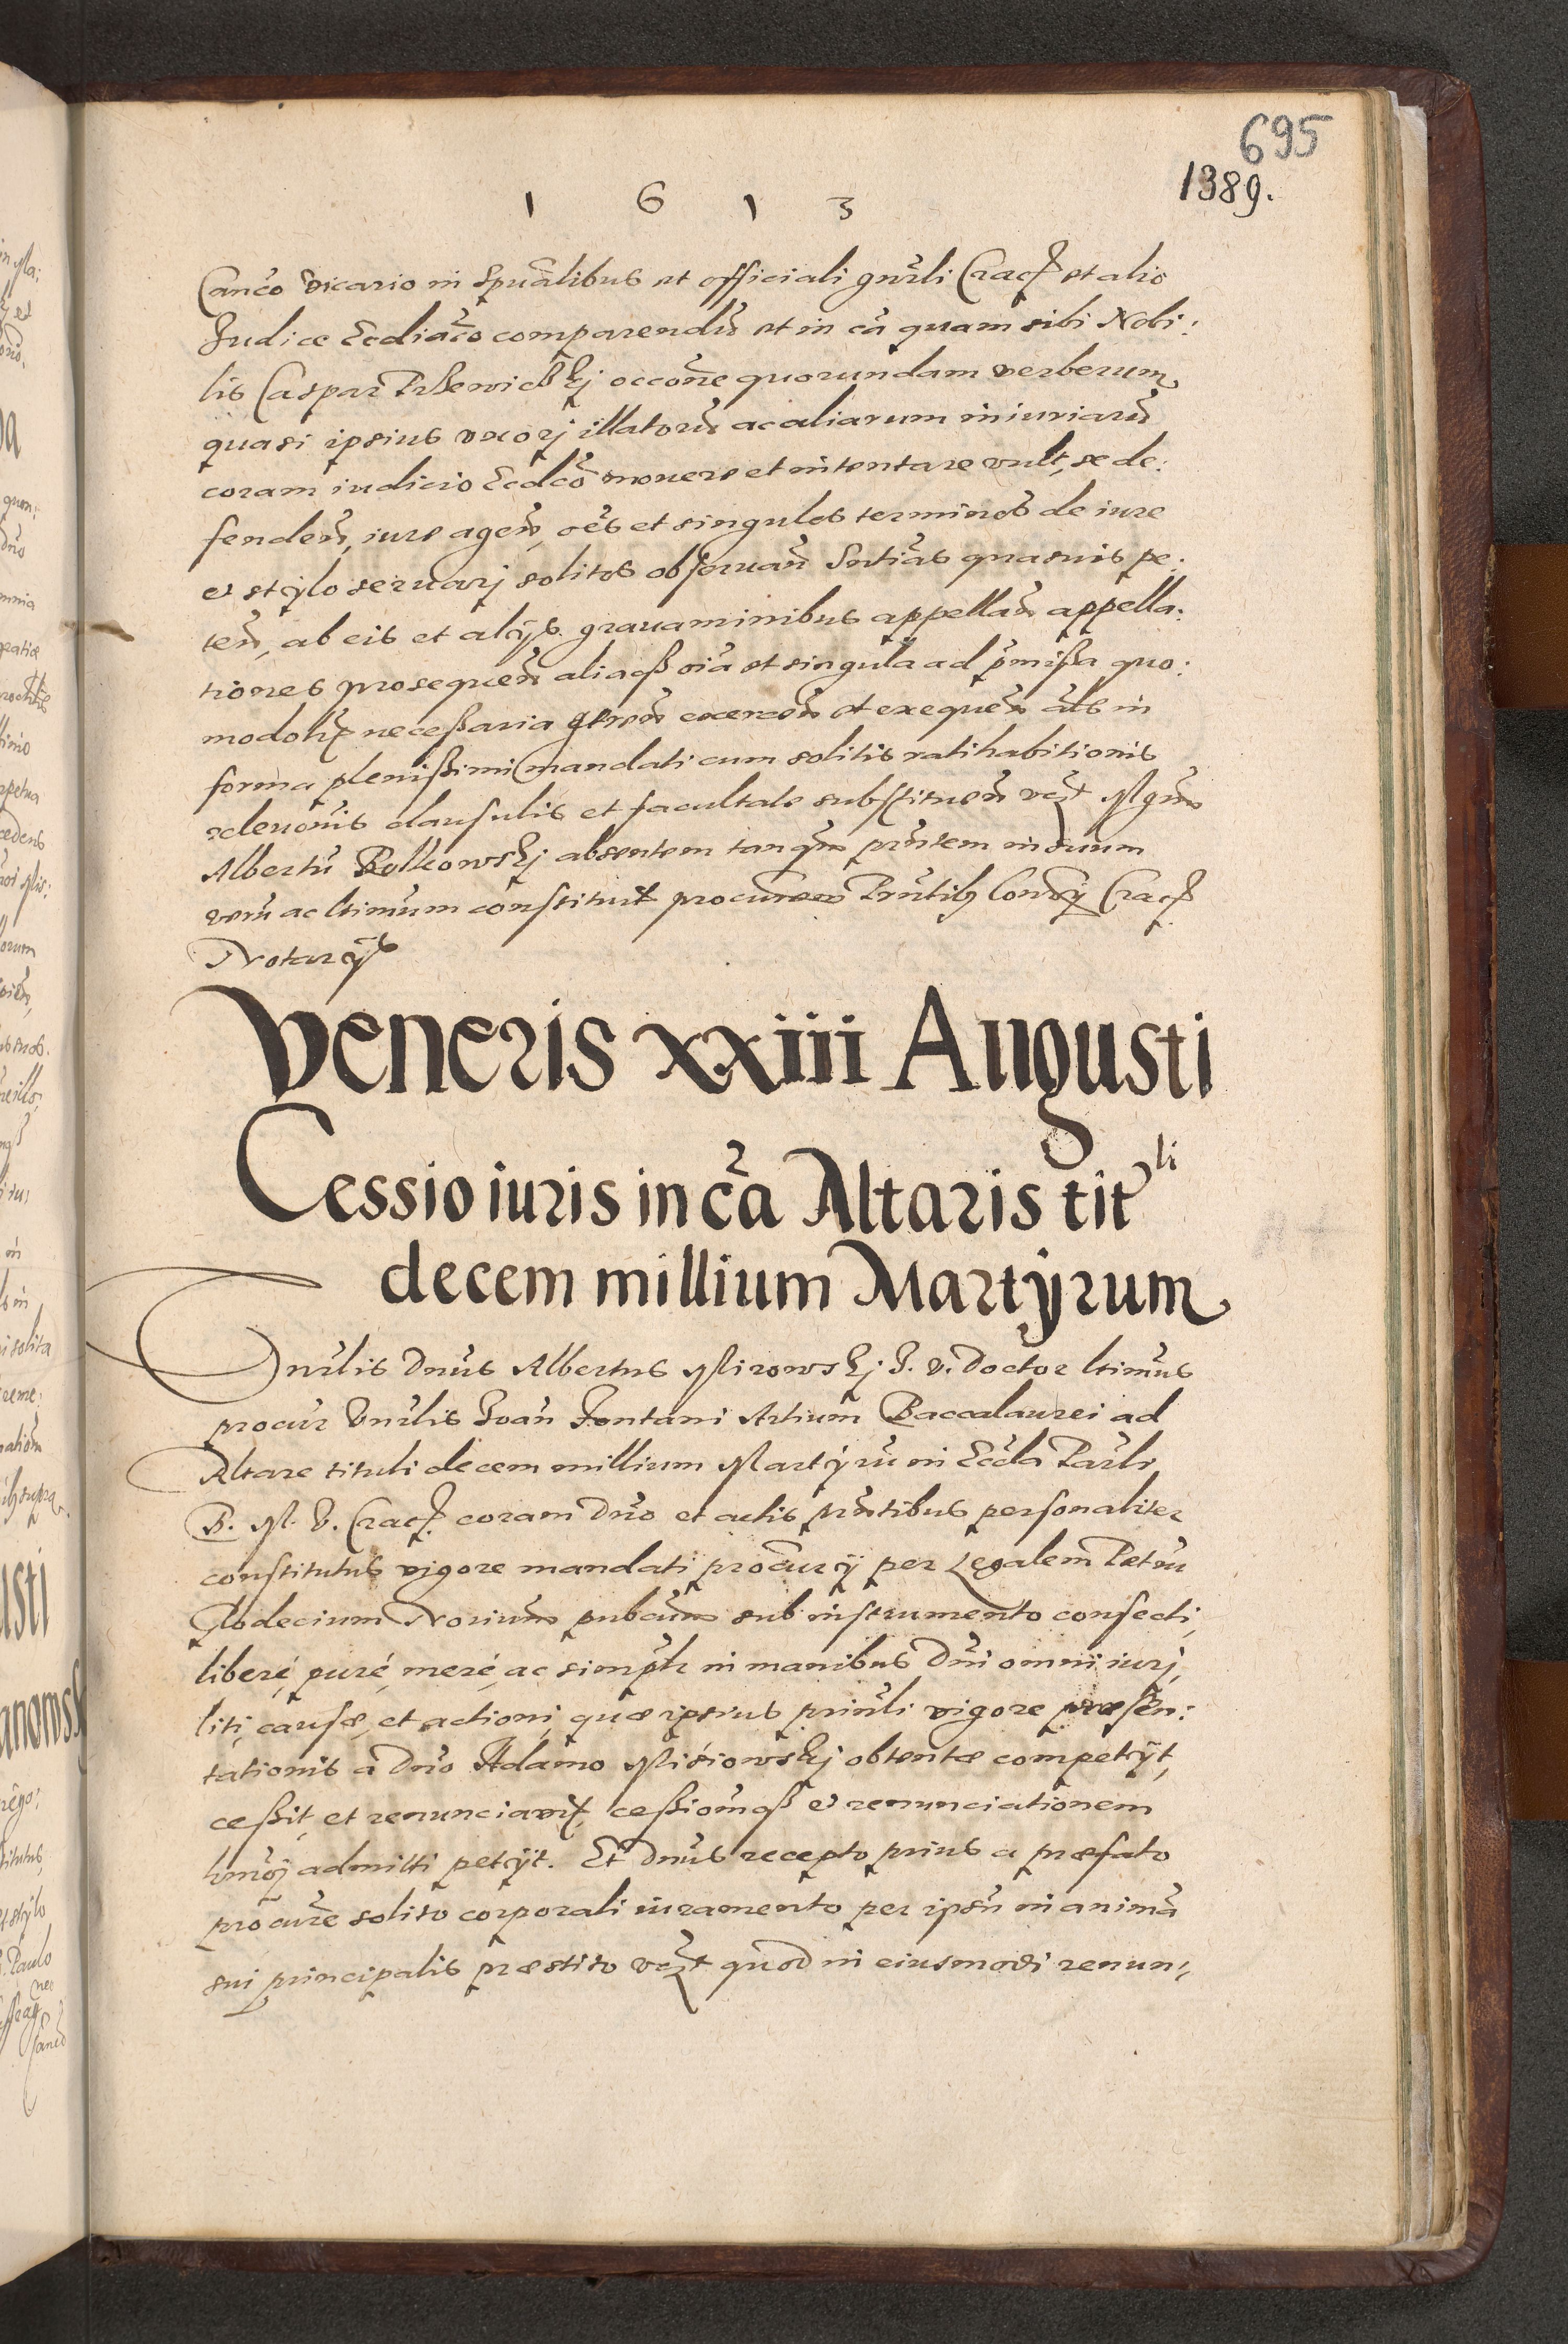 695
1389.
1 6 1 3
Canco Vicario in Spũalibus et officiali gnrli Crac̃ et alio
Judice Ecclia͠co comparendũ et in cã quam sibi Nobi:
lis Caspar occone quorundam verberum
quasi ipsius uxorj illatorũ ac aliarum iniuriarũ
coram iudicio Ecclco mouere et intentare vult, se de:
fendeñ, iure ageñ, oẽs et singulos terminos de iure
et stylo seruarj solitos obseruañ Sntias quasuis pe:
teñ, ab eis et alijs grauaminibus appellañ appella:
tiones prosequeñ aliaq̃ oĩa et singula ad p̃missa quo:
modolt necessaria exerceñ et exequeñ als in
forma plenissimi mandati cum solitis ratihabitionis
releuonis clausulis et facultate substitueñ vczt Mgrũ
Albertũ absentem tanq̃ pñtem in suum
verũ ac ltimum constituit procurem Pñtibus Crac̃
Notarijs
Veneris xxiii Augusti
Cessio iuris in cã Altaris tit li
decem millium Martyrum
Vnrlis Dnus Albertus Mirowskj J. V. Doctor ltimus
procur Vnrlis Joañ Fontani Artium Baccalaurei ad
Altare tituli decem millium Martyrũ in Eccla Parli
B. M. V. Crac̃ coram Dno et actis pñtibus personaliter
constitutus vigore mandati procurij per Legalem Petrũ
Glodecium Noriũ pubcũ sub instrumento confecti,
liberé, puré, meré, ac simplr in manibus Dni omni iurj,
liti, causæ, et actioni, quæ ipsius prinli vigore præsen:
tationis a Dno Adamo obtentæ competijt,
cessit, et renunciavit, cessionẽq̃ et renunciationem
hmõj admitti petijt. Et Dnus recepto prius a præfato
procure solito corporali iuramento per ipsũ in animã
sui principalis præstito vczt quod in eiusmodi renun: